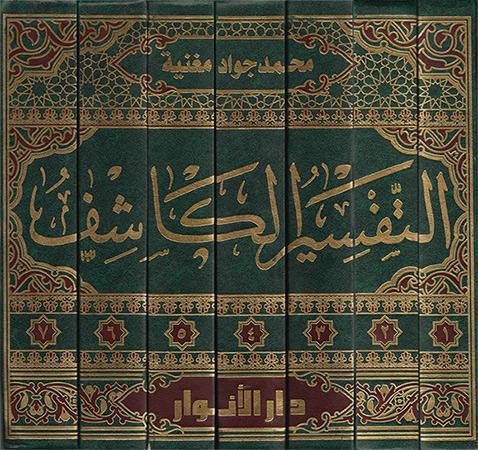 محمد جواد مغنية
التفسير الكاشف
١ ٢ ٣ ٤ ٥ ٦ ٧
دار الأنوار